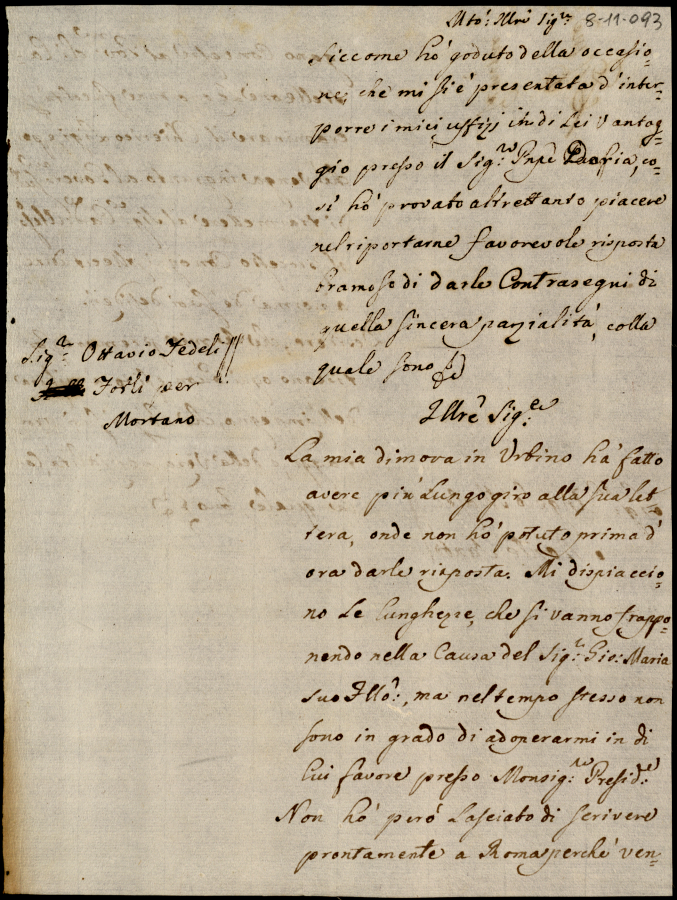 Mto: Illre Sigre
8-11-093
Siccome hó goduto della occasio-
ne, che mi si é presentata d'inter-
porre i miei uffizj in di Lei vantag-
gio presso il Sigr Pnpe Doria, co-
sí hó provato altrettanto piacere
nel riportarne favorevole risposta
bramoso di darle Contrasegni di
quella sincera parzialitá, colla
quale sono
Sigr Ottavio Fedeli
Forlí per
Mortano
Illre Sigre
La mia dimora in Urbino há fatto
avere piú Lungo giro alla sua let
tera, onde non hó potuto prima d'
ora darle risposta. Mi dispiaccio-
no Le Lunghezze, che si vanno frappo-
nendo nella Causa del Sigr: Gio: Maria
suo Fllo:, ma nel tempo stesso non
sono in grado di adoperarmi in di
Lui favore presso Monsigr: Preside:
Non hó peró Lasciato di scrivere
prontamente a Roma perché ven-